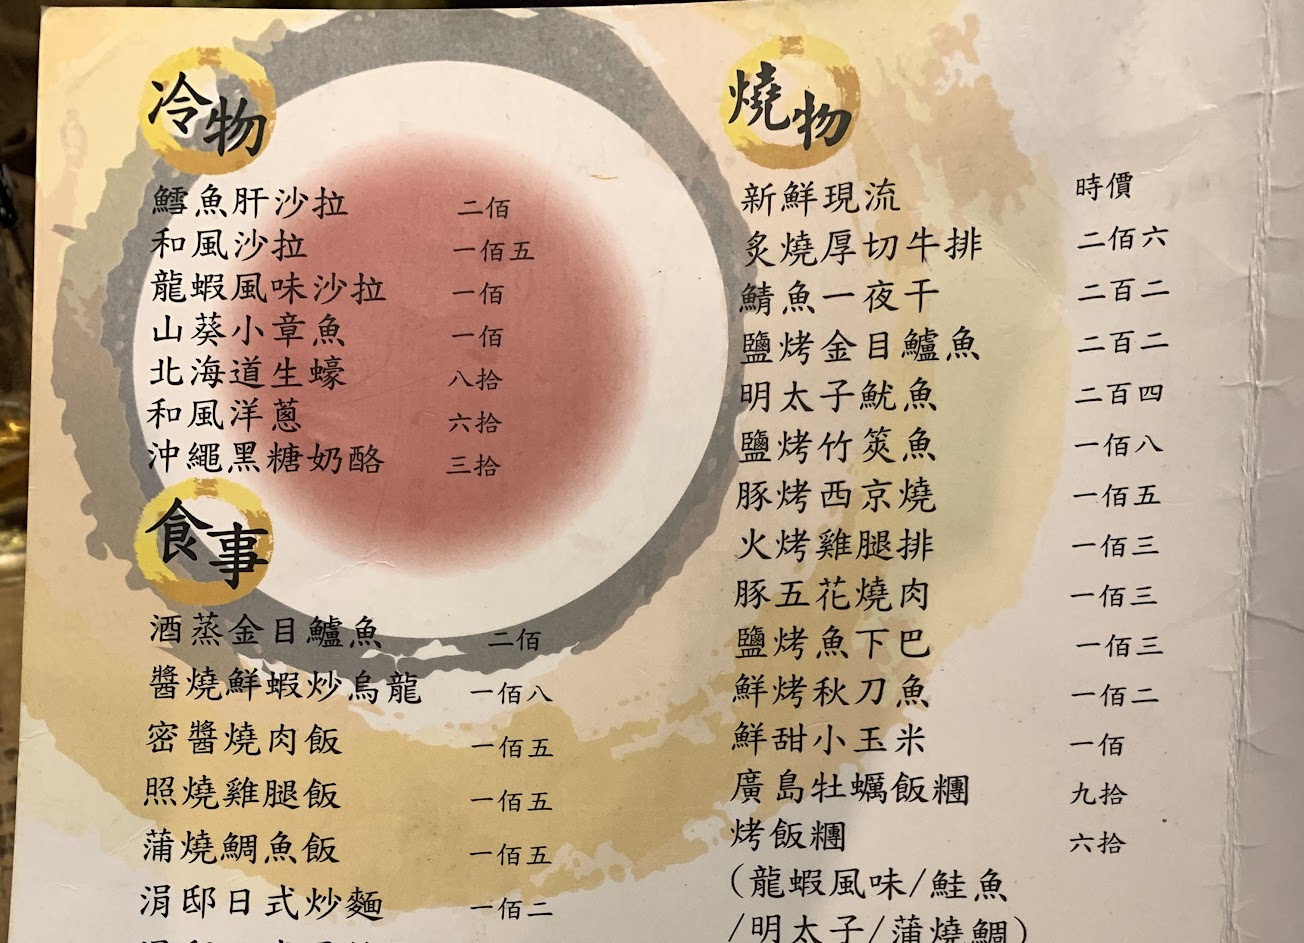 冷物
鱈魚肝沙拉 二佰
和風沙拉 一佰五
龍蝦風味沙拉 一佰
山葵小章魚 一佰
北海道生蠔 八拾
和風洋蔥 六拾
沖繩黑糖奶酪 三拾
食事
酒蒸金目鱸魚 二佰
醬燒鮮蝦炒烏龍 一佰八
密醬燒肉飯 一佰五
照燒雞腿飯 一佰五
蒲燒鯛魚飯 一佰五
涓邸日式炒麵 一佰二
燒物
新鮮現流 時價
炙燒厚切牛排 二佰六
鯖魚一夜干 二百二
鹽烤金目鱸魚 二百二
明太子魷魚 二百四
鹽烤竹筴魚 一佰八
豚烤西京燒 一佰五
火烤雞腿排 一佰三
豚五花燒肉 一佰三
鹽烤魚下巴 一佰三
鮮烤秋刀魚 一佰二
鮮甜小玉米 一佰
廣島牡蠣飯糰 九拾
烤飯糰 六拾
(龍蝦風味/鮭魚
/明太子/蒲燒鯛)